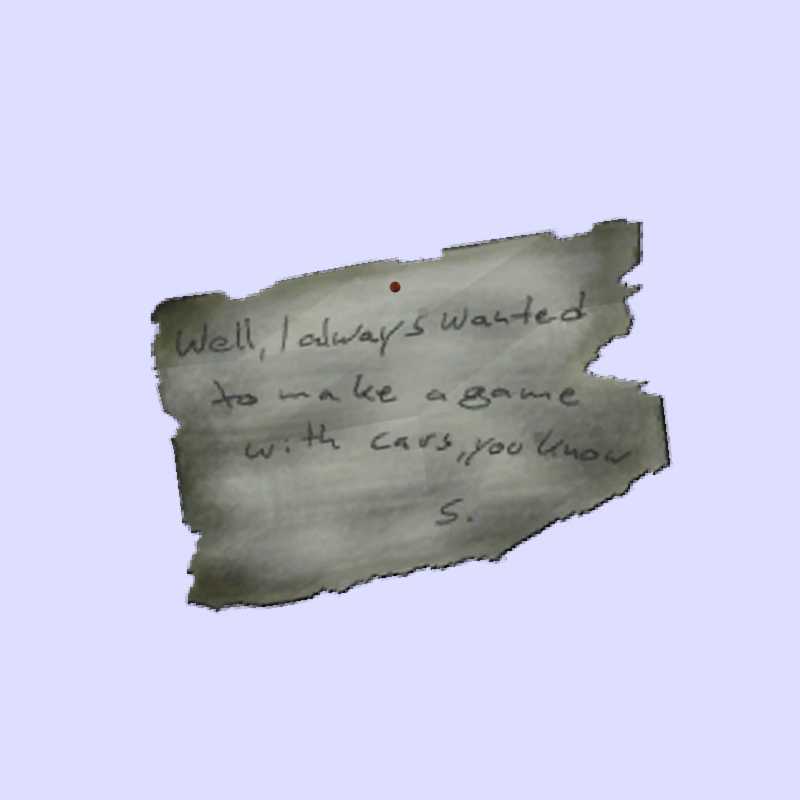 Well, I always wanted
to make a game
with cars, you know
S.